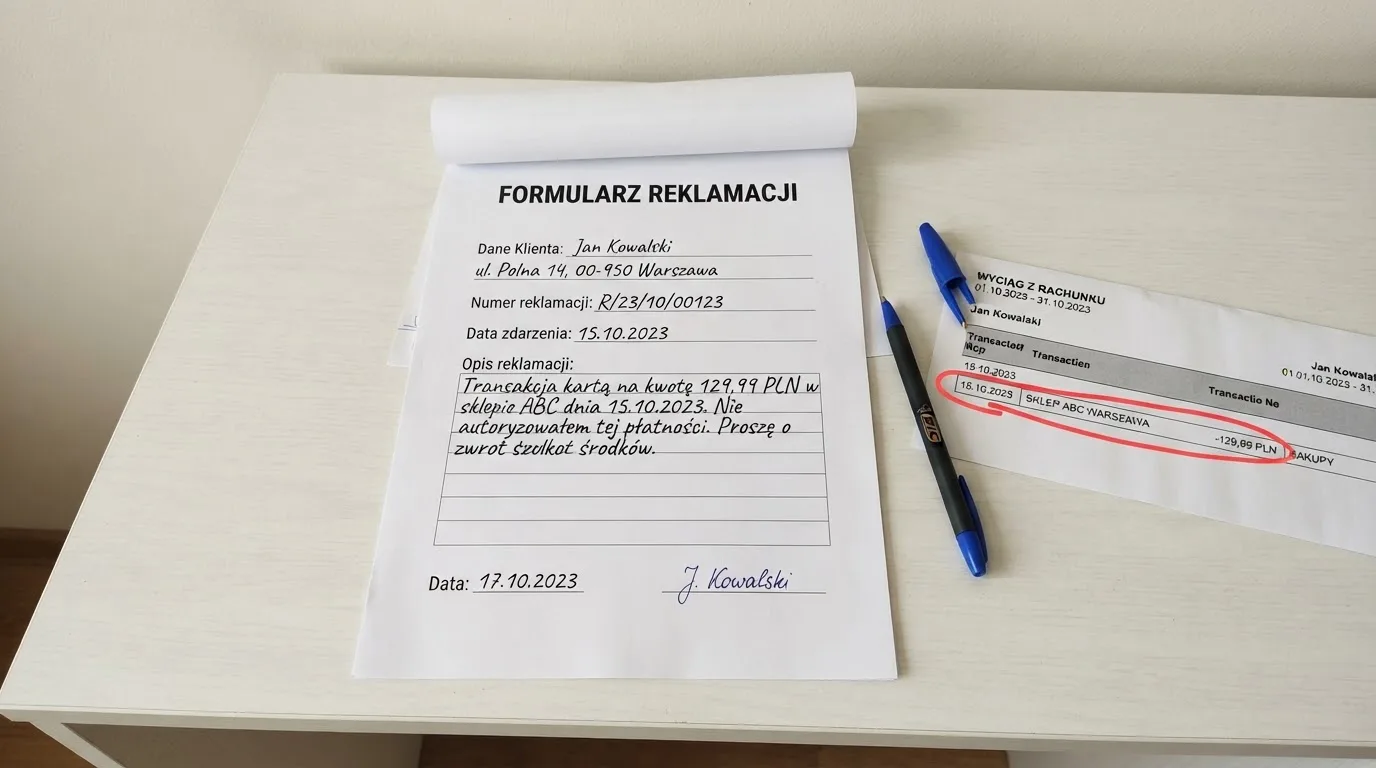 FORMULARZ REKLAMACJI
Dane Klienta: Jan Kowalski
ul. Polna 14, 00-950 Warszawa
Numer reklamacji: R/23/10/00123
Data zdarzenia: 15.10.2023
Opis reklamacji:
Transakcja kartą na kwotę 129,99 PLN w
sklepie ABC dnia 15.10.2023. Nie
autoryzowałem tej płatności. Proszę o
zwrot środków.
Data: 17.10.2023
J. Kowalski
WYCIĄG Z RACHUNKU
01.10.3023 - 31.10.2023
Jan Kowalaki
Transactien
Jan Kowalaf
01 01.1G 2023 - 31.
Transactio Ne
15 10.2023
SKLEP ABC WARSEAWA
-129,99 PLN